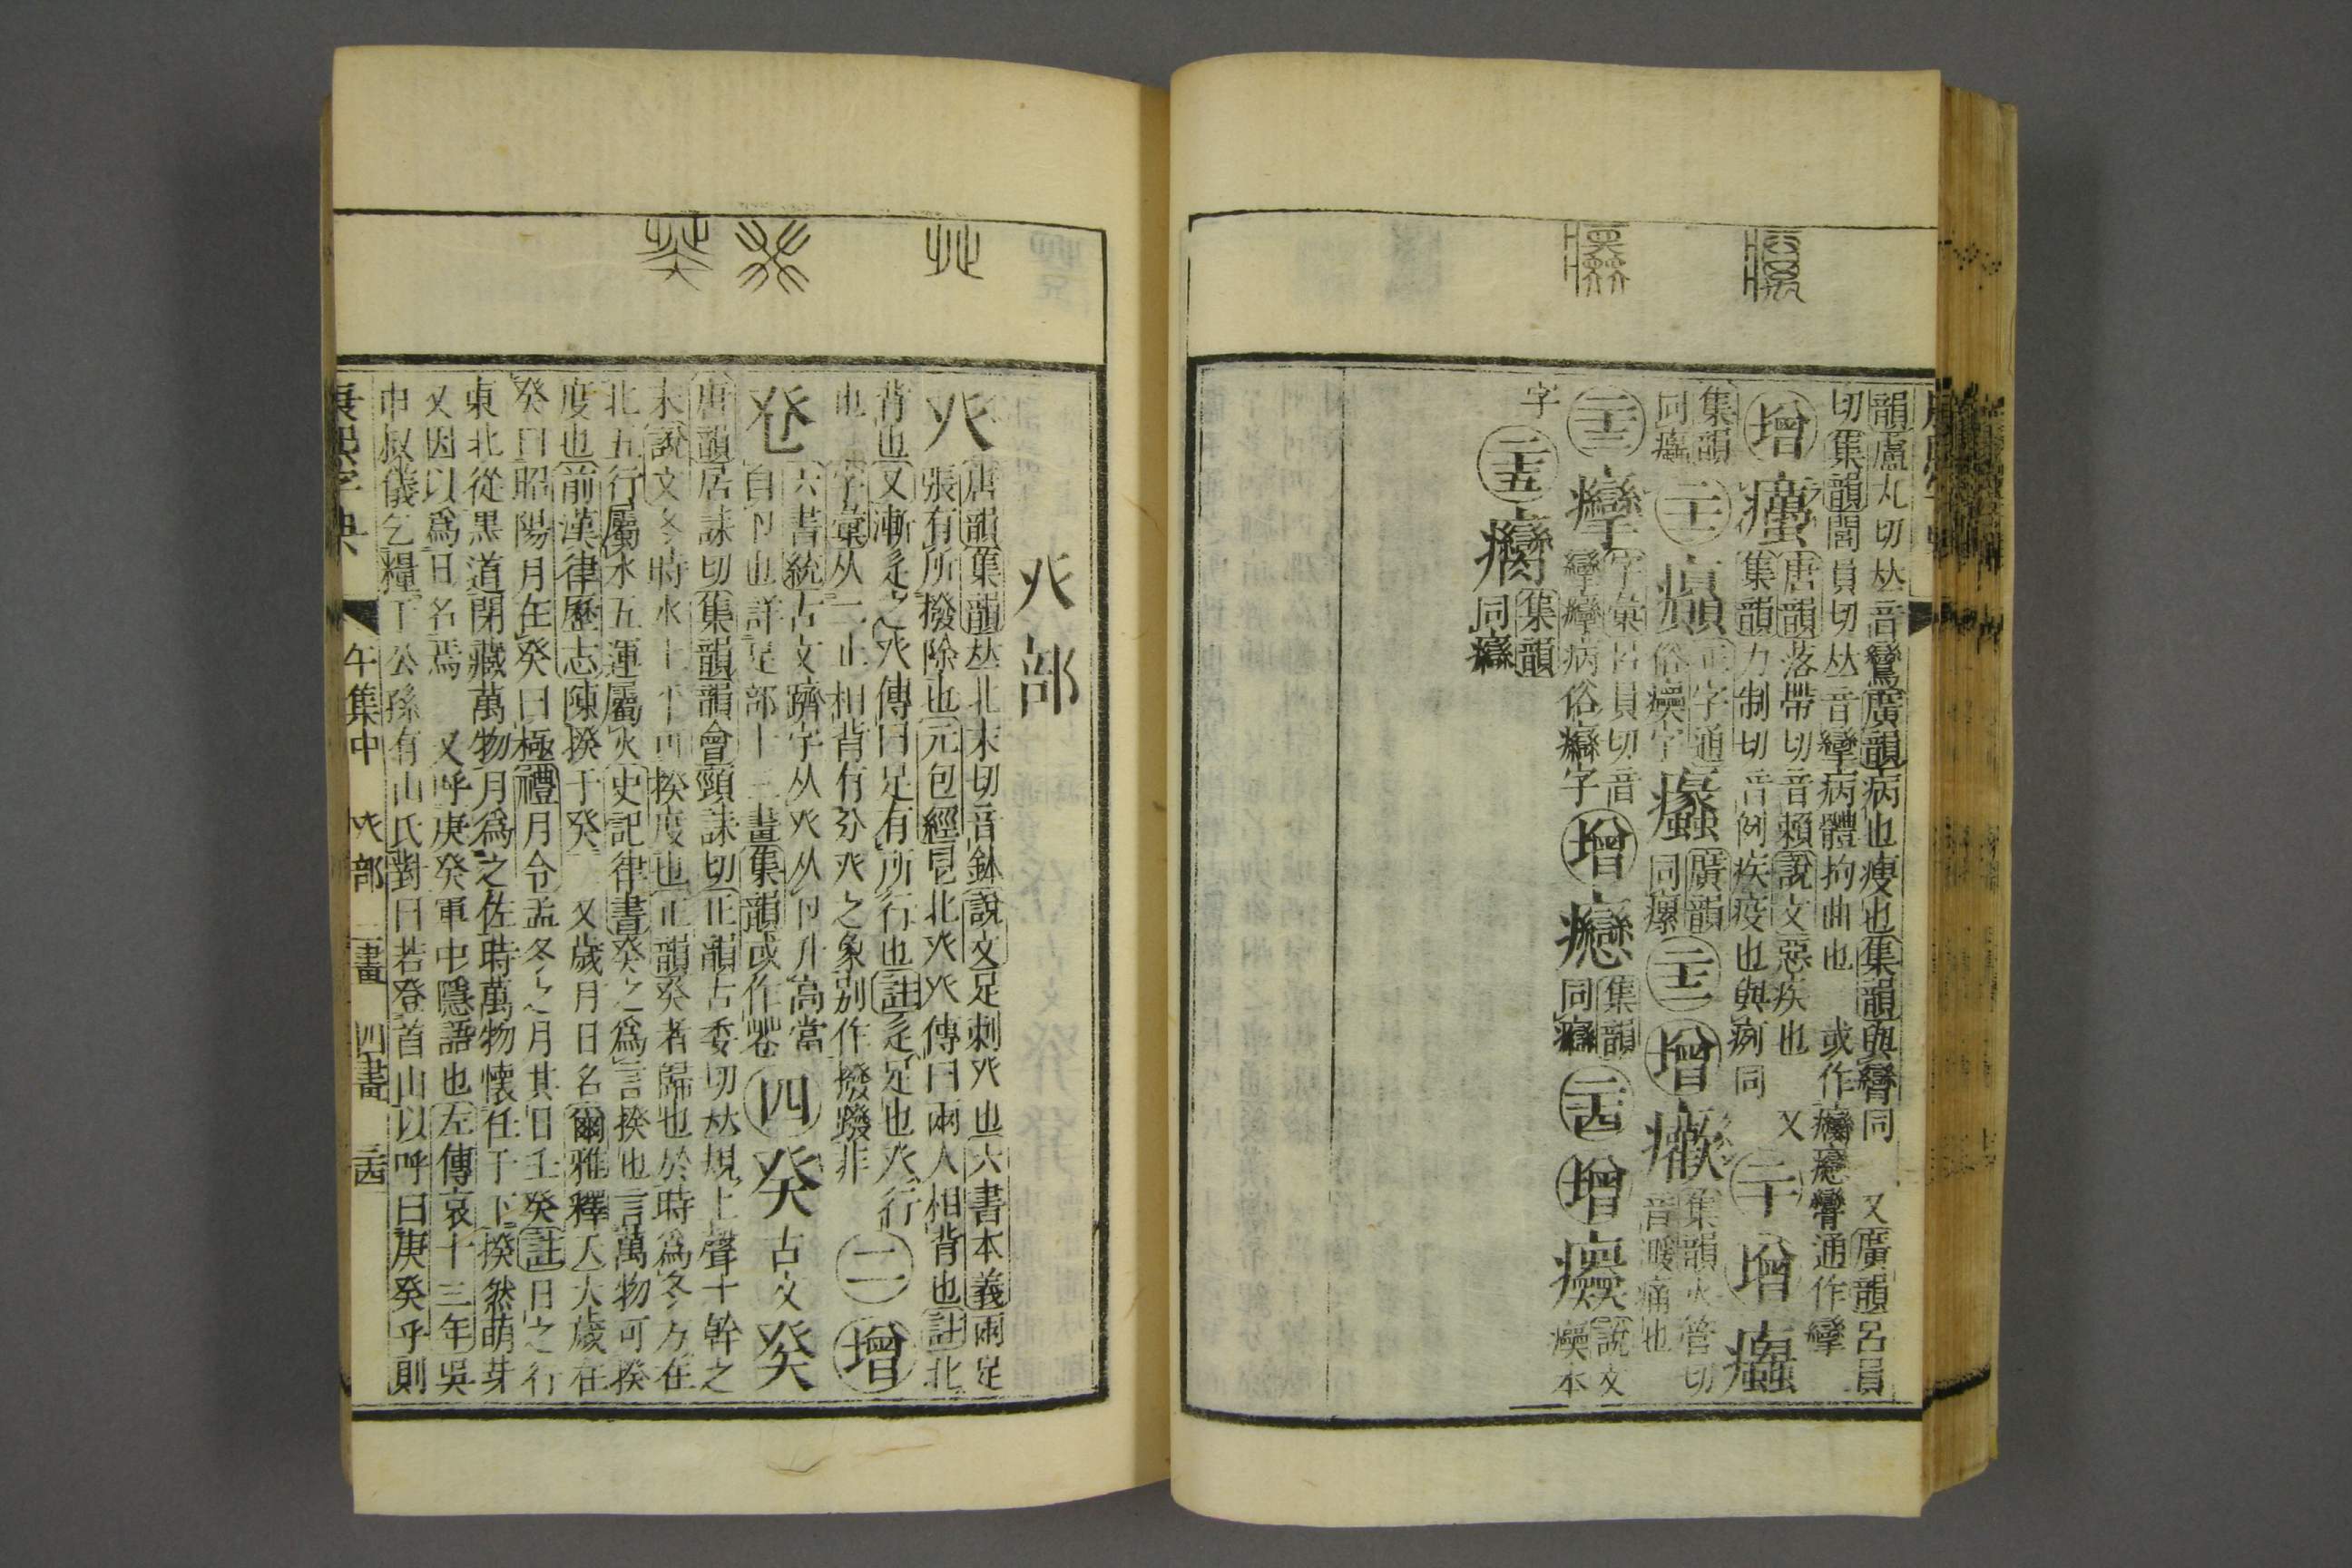 韻盧丸切𠀤音鸞廣韻病也瘦也集韻與臠同 又廣韻呂員
切集韻閭員切𠀤音攣病體拘曲也 或作 通作攣
增 唐韻落帶切音賴說文惡疾也 又
集韻力制切音例疾疫也與痢同 二十 增
集韻
同癘 二十一 正字通
俗 字 廣韻
同瘰 二十二 增 集韻火管切
音 痛也
二十三 癴 字彙呂員切音
攣癴病俗 字 增 集韻
同 二十四 增 說文
本
字
二十五 集韻
同
癶部
癶 唐韻集韻𠀤北末切音鉢說文足剌癶也六書本義兩足
張有所撥除也元包經 北癶癶傳曰兩人相背也註北
背也 又漸辵之癶傳曰足有所行也註辵足也癶行
也 字彙从二止相背有分癶之象別作撥蹳非 二 增
六書統古文躋字从癶从 升高當
自 也詳辵部十三畫集韻或作 四 癸 古文 癸
唐韻居誄切集韻韻會頸誄切正韻古委切𠀤規上聲十幹之
末說文冬時水土平可揆度也正韻癸者歸也於時爲冬方在
北五行屬水五運屬火史記律書癸之爲言揆也言萬物可揆
度也前漢律歷志陳揆于癸 又歲月日名爾雅釋天太歲在
癸曰昭陽月在癸曰極禮月令孟冬之月其日壬癸註日之行
東北從黑道閉藏萬物月爲之佐時萬物懷任于下揆然萌芽
又因以爲日名焉 又呼庚癸軍中隱語也左傳哀十三年吳
申叔儀乞糧于公孫有山氏對曰若登首山以呼曰庚癸乎則
康熙字典 午集中 癶部 二畫 四畫 二十四